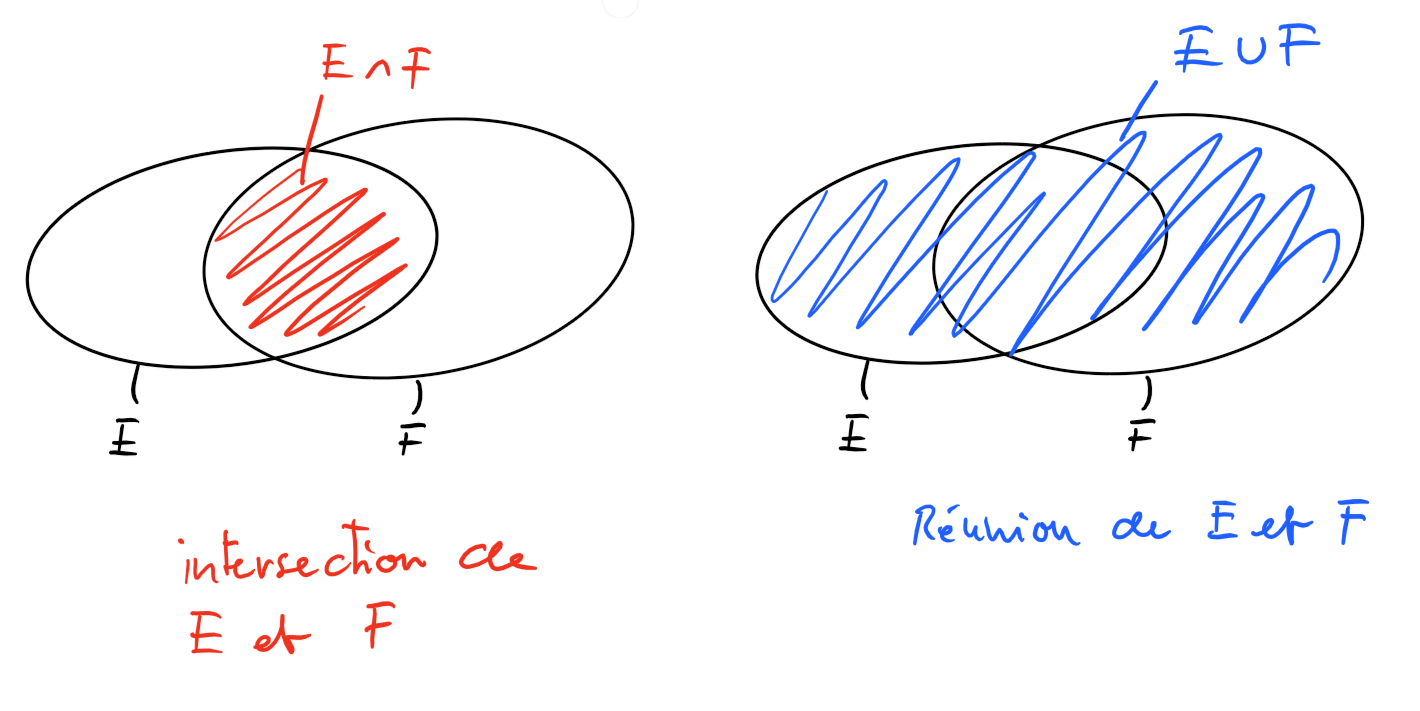 E ∩ F
E
F
intersection de
E et F
E ∪ F
E
F
Réunion de E et F